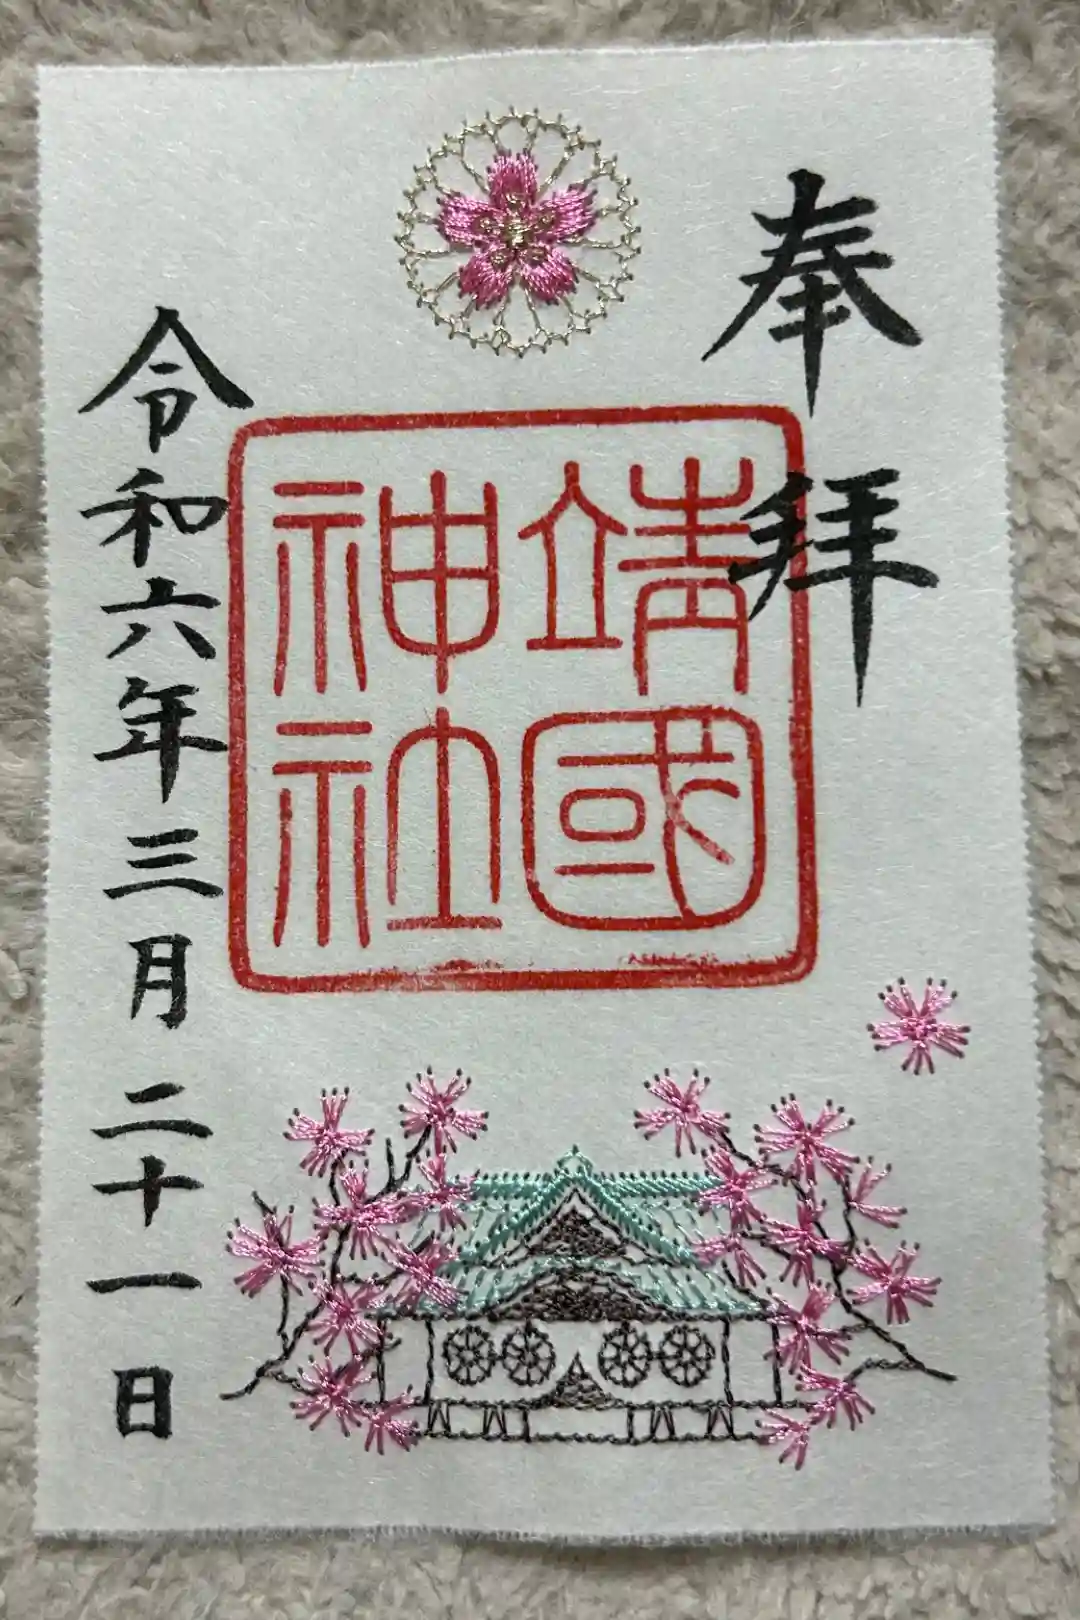 奉拝
靖國
神社
令和六年三月二十一日